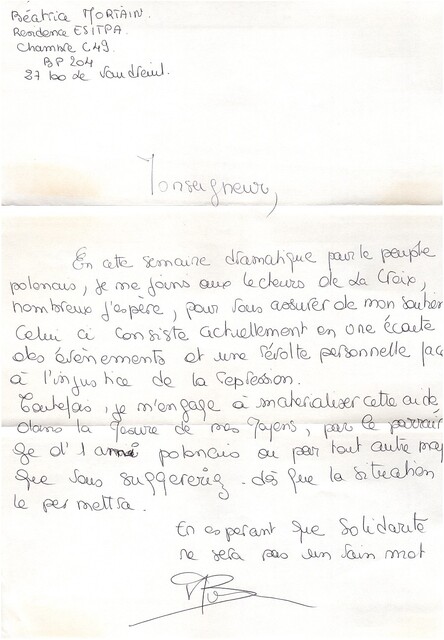 Béatrice MORTAIN.
Residence ESITPA.
Chambre C49.
BP 204
27 100 de Vaudreuil.
Monseigneur,
En cette semaine dramatique pour le peuple
polonais, je me joins aux lecteurs de La Croix,
nombreux j'espère, pour vous assurer de mon soutien
Celui ci consiste actuellement en une écoute
des évènements et une révolte personnelle fac
à l'injustice de la répression.
Toutefois, je m'engage à materialiser cette aide
dans la mesure de mes moyens, par le parrain
ge d'1 ami polonais ou par tout autre moy
que vous suggererez. dès que la situation
le permettra.
En esperant que Solidarité
ne sera pas un vain mot